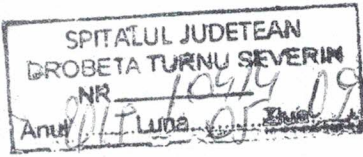 SPITALUL JUDETEAN
DROBETA TURNU SEVERIN
NR 10414
Anul 2017 Luna 05 Ziua 09